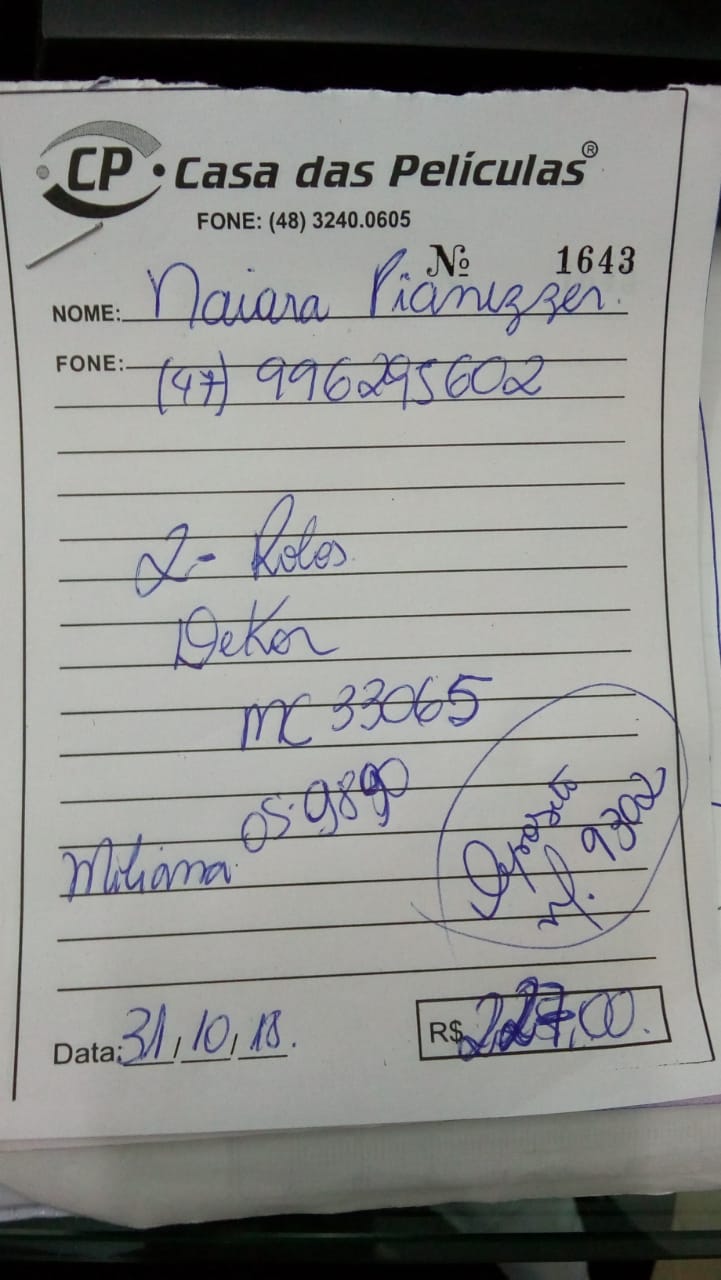 CP • Casa das Películas®
FONE: (48) 3240.0605
Nº 1643
NOME: Naiara Pianezzer.
FONE: (47) 996295602
2- Rolos
DeKor
MC 33065
OS: 9890
Miliana
9302
Data: 31/10/18.
R$ 227,00.